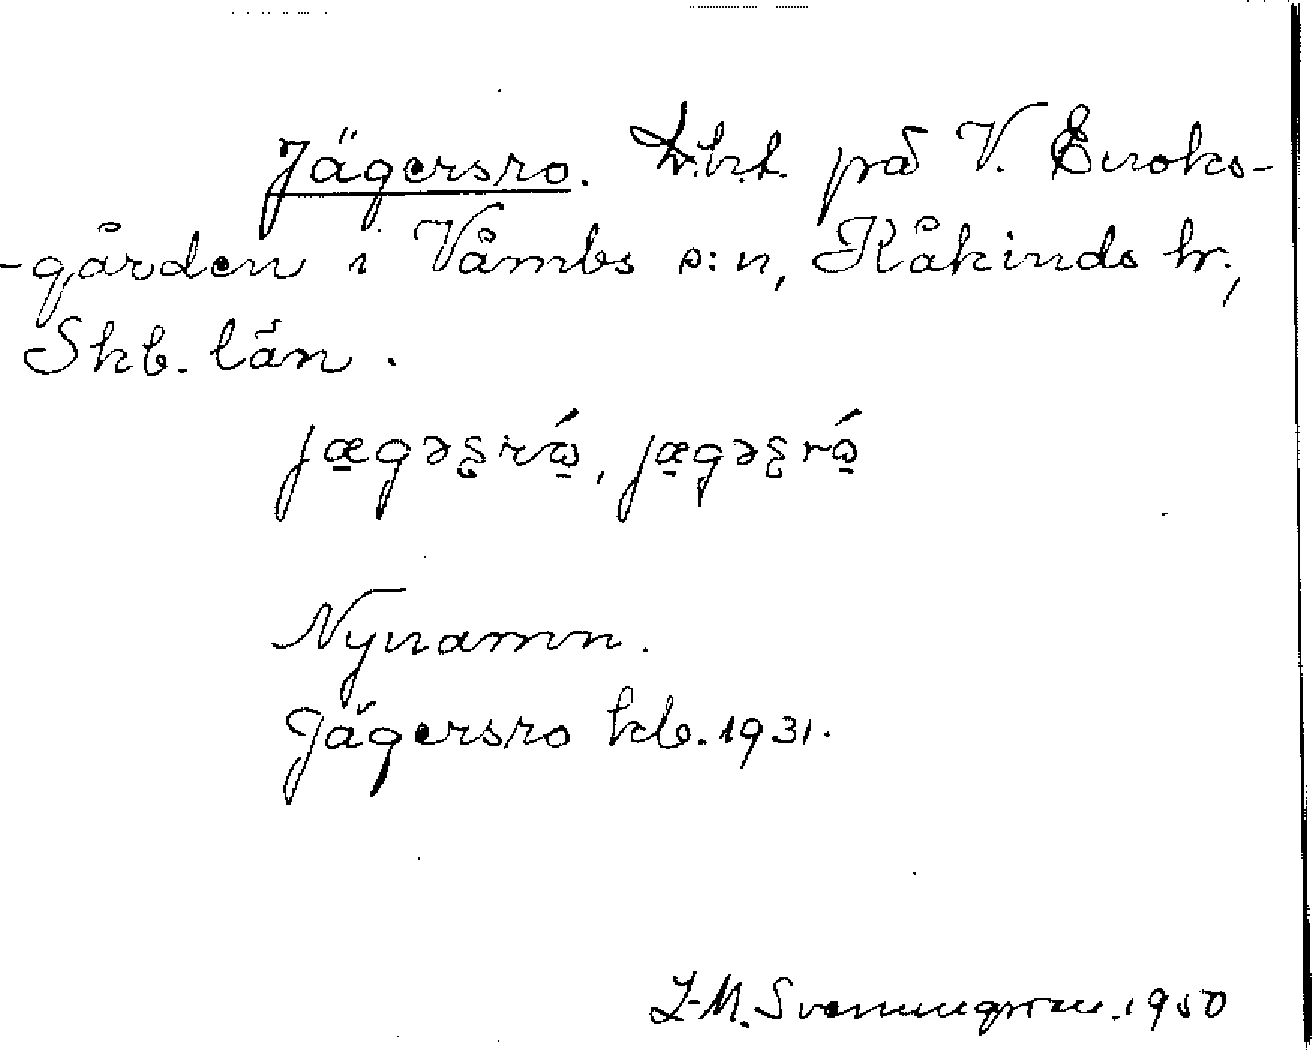 Jägersro. på V. Enoks-
-gården i Våmbs s:n, Kåkinds hr.,
Skb. län.
jægəʂrό̱, jægəʂrό̱
Nynamn.
Jägersro kb. 1931.
I-M. Svenungsson. 1950